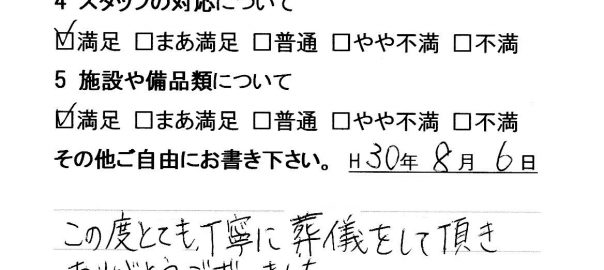 4 スタッフの対応について
☑満足 □まあ満足 □普通 □やや不満 □不満
5 施設や備品類について
☑満足 □まあ満足 □普通 □やや不満 □不満
その他ご自由にお書き下さい。 H30年 8月 6日
この度とても、丁寧に葬儀をして頂き
ありがとうございました